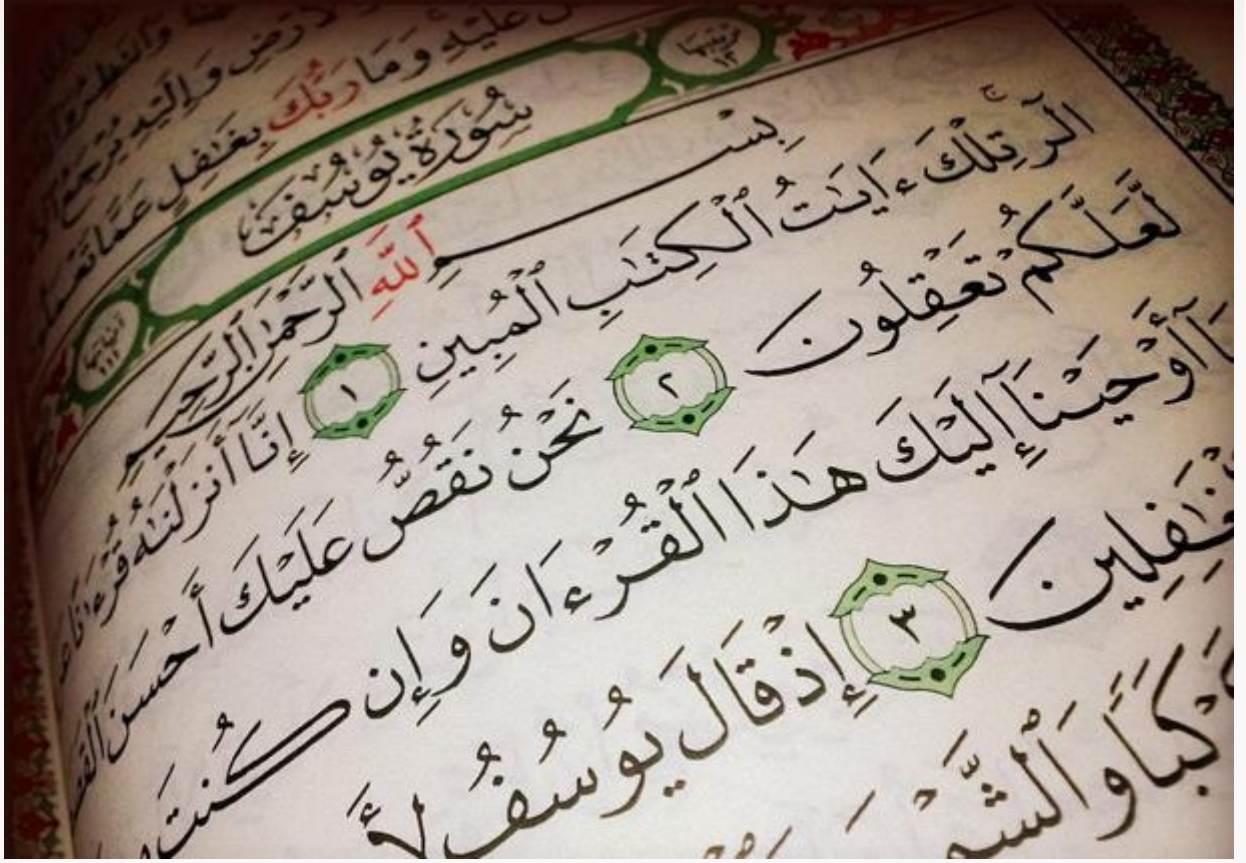 وَانتَظِرُوا
رْضِ وَإِلَيْهِ يُرْجَعُ
عَلَيْهِ وَمَا رَبُّكَ بِغَٰفِلٍ عَمَّا تَعْمَلُ
سُورَةُ يُوسُفَ
بِسْمِ ٱللَّهِ ٱلرَّحْمَٰنِ ٱلرَّحِيمِ
الٓر ۚ تِلْكَ ءَايَٰتُ ٱلْكِتَٰبِ ٱلْمُبِينِ ١ إِنَّآ أَنزَلْنَٰهُ قُرْءَٰنًا
لَّعَلَّكُمْ تَعْقِلُونَ ٢ نَحْنُ نَقُصُّ عَلَيْكَ أَحْسَنَ ٱلْقَصَ
أَوْحَيْنَآ إِلَيْكَ هَٰذَا ٱلْقُرْءَانَ وَإِن كُنتَ
غَٰفِلِينَ ٣ إِذْ قَالَ يُوسُفُ لِأَ
كَبًا وَٱلشَّمْ